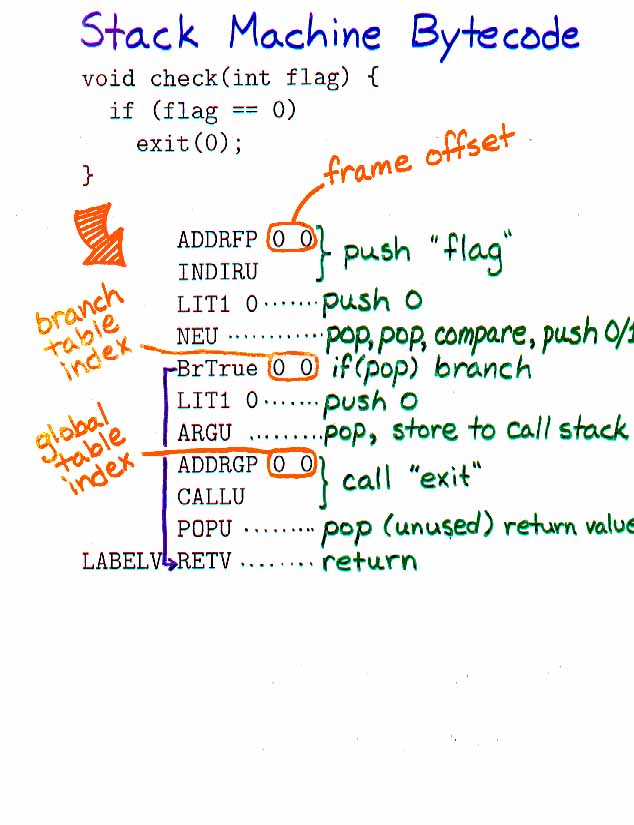 Stack Machine Bytecode
void check(int flag) {
if (flag == 0)
exit(0);
}
frame offset
ADDRFP 0 0 } push "flag"
INDIRU
LIT1 0 ....... push 0
branch table index
NEU ............ pop, pop, compare, push 0/1
BrTrue 0 0 if(pop) branch
LIT1 0 ....... push 0
global table index
ARGU ......... pop, store to call stack
ADDRGP 0 0 } call "exit"
CALLU
POPU ......... pop (unused) return value
LABELV RETV ........ return